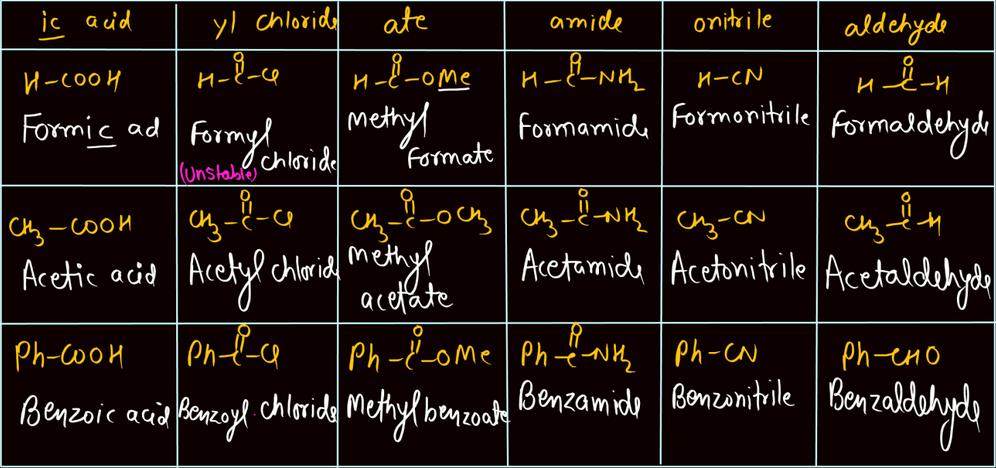 ic acid
yl chloride
ate
amide
onitrile
aldehyde
H-COOH
Formic ad
H-C(=O)-Cl
Formyl
chloride
(Unstable)
H-C(=O)-OMe
Methyl
Formate
H-C(=O)-NH₂
Formamide
H-CN
Formonitrile
H-C(=O)-H
Formaldehyde
CH₃-COOH
Acetic acid
CH₃-C(=O)-Cl
Acetyl chloride
CH₃-C(=O)-OCH₃
Methyl
acetate
CH₃-C(=O)-NH₂
Acetamide
CH₃-CN
Acetonitrile
CH₃-C(=O)-H
Acetaldehyde
Ph-COOH
Benzoic acid
Ph-C(=O)-Cl
Benzoyl chloride
Ph-C(=O)-OMe
Methyl benzoate
Ph-C(=O)-NH₂
Benzamide
Ph-CN
Benzonitrile
Ph-CHO
Benzaldehyde